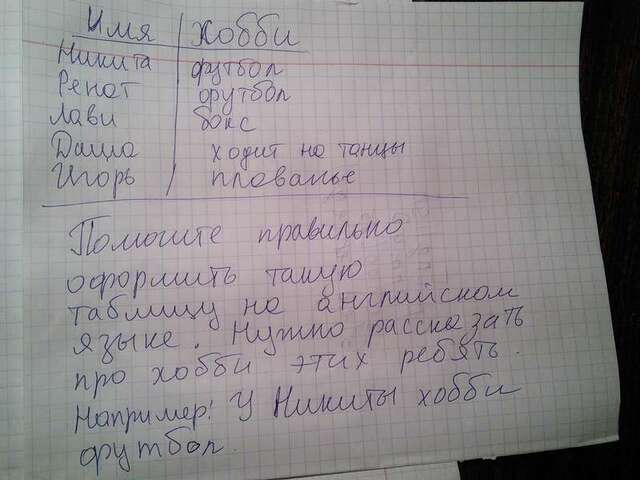 Имя Хобби
Никита футбол
Ренат футбол
Лави бокс
Даша ходит на танцы
Игорь плованье
Помогите правильно
оформить такую
таблицу на английском
языке. Нужно рассказать
про хобби этих ребять.
Например: У Никиты хобби
футбол.